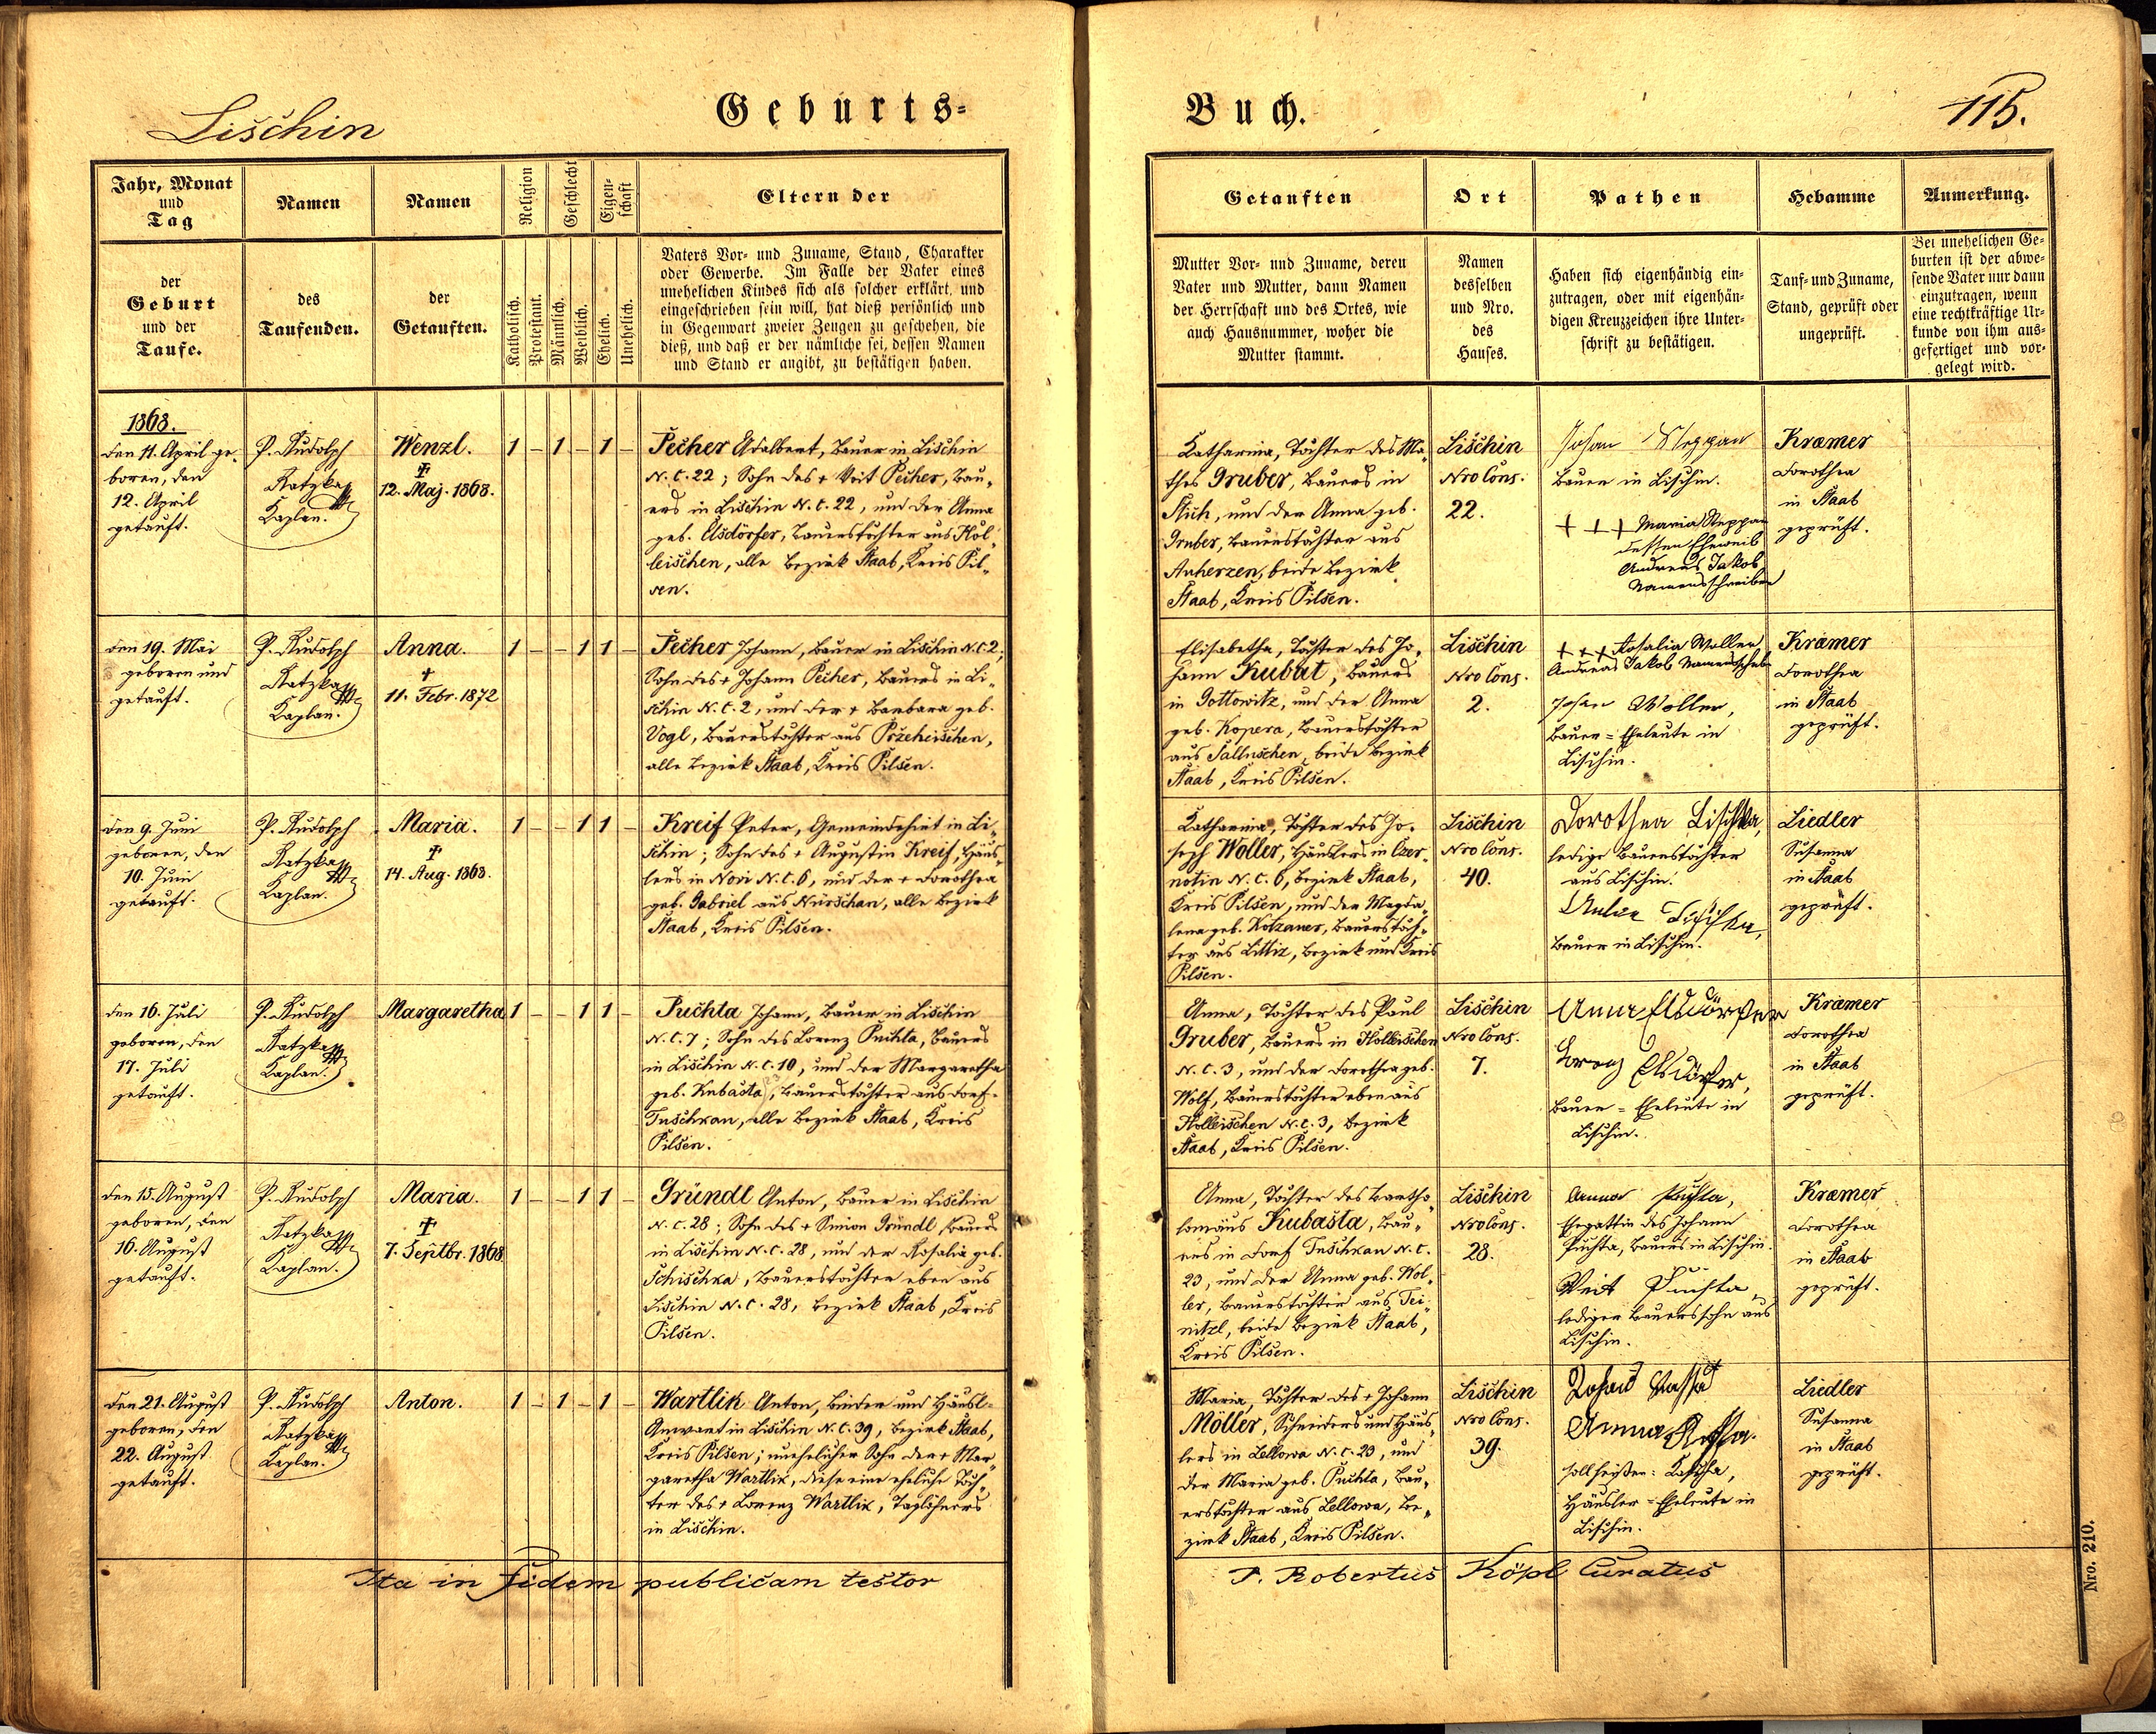 Lischin
Geburts-
Buch.
115.
Jahr, Monat
und
Tag
der
Geburt
und der
Taufe.
Namen
des
Taufenden.
Namen
der
Getauften.
Religion
Katholisch.
Protestant.
Geschlecht
Männlich.
Weiblich.
Eigen-
schaft
Ehelich.
Unehelich.
Eltern der
Vaters Vor- und Zuname, Stand, Charakter
oder Gewerbe. Im Falle der Vater eines
unehelichen Kindes sich als solcher erklärt, und
eingeschrieben sein will, hat dieß persönlich und
in Gegenwart zweier Zeugen zu geschehen, die
dieß, und daß er der nämliche sei, dessen Namen
und Stand er angibt, zu bestätigen haben.
Getauften
Mutter Vor- und Zuname, deren
Vater und Mutter, dann Namen
der Herrschaft und des Ortes, wie
auch Hausnummer, woher die
Mutter stammt.
Ort
Namen
desselben
und Nro.
des
Hauses.
Pathen
Haben sich eigenhändig ein-
zutragen, oder mit eigenhän-
digen Kreuzzeichen ihre Unter-
schrift zu bestätigen.
Hebamme
Tauf- und Zuname,
Stand, geprüft oder
ungeprüft.
Anmerkung.
Bei unehelichen Ge-
burten ist der abwe-
sende Vater nur dann
einzutragen, wenn
eine rechtkräftige Ur-
kunde von ihm aus-
gefertiget und vor-
gelegt wird.
1868.
den 11. April ge-
boren, den
12. April
getauft.
P. Rudolph
Ratzka
Kaplan.
Wenzl.
†
12. Maj. 1868.
1 - 1 - 1 -
Pecher Adalbert, Bauer in Lischin
N. C. 22; Sohn des + Veit Pecher, Bau-
ers in Lischin N. C. 22, und der Anna
geb. Elsdörfer, Bauerstochter aus Hol-
leischen, alle Bezirk Staab, Kreis Pil-
sen.
Katharina, Tochter des Ma-
thes Gruber, Bauers in
Stich, und der Anna geb.
Gruber, Bauerstochter aus
Anherzen, beide Bezirk
Staab, Kreis Pilsen.
Lischin
Nro Cons.
22.
Johan Steppan
Bauer in Lischin.
+++ Maria Steppan
dessen Eheweib
Andreas Jakob
Namensschreiber
Kramer
Dorothea
in Staab
geprüft.
den 19. Mai
geboren und
getauft.
P. Rudolph
Ratzka
Kaplan.
Anna.
†
11. Febr. 1872
1 - - 1 1 -
Pecher Johann, Bauer in Lischin N. C. 2;
Sohn des + Johann Pecher, Bauers in Li-
schin N. C. 2, und der + Barbara geb.
Vogl, Bauerstochter aus Przeheischen,
alle Bezirk Staab, Kreis Pilsen.
Elisabetha, Tochter des Jo-
hann Kubat, Bauers
in Gottowitz, und der Anna
geb. Kopera, Bauerstochter
aus Salluschen, beide Bezirk
Staab, Kreis Pilsen.
Lischin
Nro Cons.
2.
+++ Rosalia Woller
Andreas Jakob Namensschrb
Johan Woller,
Bauer = Eheleute in
Lischin.
Kramer
Dorothea
in Staab
geprüft.
den 9. Juni
geboren, den
10. Juni
getauft.
P. Rudolph
Ratzka
Kaplan.
Maria.
†
14. Aug. 1868.
1 - - 1 1 -
Kreif Peter, Gemeindehirt in Li-
schin; Sohn des + Augustin Kreif, Häus-
lers in Novi N. C. 6, und der + Dorothea
geb. Gabriel aus Nürschan, alle Bezirk
Staab, Kreis Pilsen.
Katharina, Tochter des Jo-
seph Woller, Häuslers in Czer-
notin N. C. 6, Bezirk Staab,
Kreis Pilsen, und der Magda-
lena geb. Kotzaner, Bauerstoch-
ter aus Littiz, Bezirk und Kreis
Pilsen.
Lischin
Nro Cons.
40.
Dorothea Lischka,
ledige Bauerstochter
aus Lischin.
Bauer in Lischin.
Liedler
Susanna
in Staab
geprüft.
den 16. Juli
geboren, den
17. Juli
getauft.
P. Rudolph
Ratzka
Kaplan.
Margaretha
1 - - 1 1 -
Puchta Johann, Bauer in Lischin
N. C. 7; Sohn des Lorenz Puchta, Bauers
in Lischin N. C. 10, und der Margaretha
geb. Kubasta, Bauerstochter aus Dorf-
Tuschkau, alle Bezirk Staab, Kreis
Pilsen.
Anna, Tochter des Paul
Gruber, Bauers in Holleischen
N. C. 3, und der Dorothea geb.
Wolf, Bauerstochter eben aus
Holleischen N. C. 3, Bezirk
Staab, Kreis Pilsen.
Lischin
Nro Cons.
7.
Anna Elsdörfer
Lorenz Elsdörfer,
Bauer = Eheleute in
Lischin.
Kramer
Dorothea
in Staab
geprüft.
den 15. August
geboren, den
16. August
getauft.
P. Rudolph
Ratzka
Kaplan.
Maria.
†
7. Septbr. 1868
1 - - 1 1 -
Gründl Anton, Bauer in Lischin
N. C. 28; Sohn des + Simon Gründl, Bauers
in Lischin N. C. 28, und der Rosalia geb.
Schischka, Bauerstochter eben aus
Lischin N. C. 28, Bezirk Staab, Kreis
Pilsen.
Anna, Tochter des Bartho-
lomäus Kubasta, Bau-
ers in Dorf Tuschkau N. C.
23, und der Anna geb. Wol-
ler, Bauerstochter aus Tei-
nitzl, beide Bezirk Staab,
Kreis Pilsen.
Lischin
Nro Cons.
28.
Anna Puchta,
Ehegattin des Johann
Puchta, Bauers in Lischin.
Veit Puchta,
lediger Bauerssohn aus
Lischin.
Kramer
Dorothea
in Staab
geprüft.
den 21. August
geboren, den
22. August
getauft.
P. Rudolph
Ratzka
Kaplan.
Anton.
1 - 1 - 1 -
Wartlik Anton, Binder und Häusl-
Anwart in Lischin N. C. 39, Bezirk Staab,
Kreis Pilsen; unehelicher Sohn der + Mar-
garetha Wartlik, diese eine eheliche Toch-
ter des + Lorenz Wartlik, Taglöhners
in Lischin.
Maria, Tochter des + Johann
Möller, Schneiders und Häus-
lers in Lellowa N. C. 23, und
der Maria geb. Puchta, Bau-
erstochter aus Lellowa, Be-
zirk Staab, Kreis Pilsen.
Lischin
Nro Cons.
39.
Anna
soll heißen: Kascha,
Häusler = Eheleute in
Lischin.
Liedler
Susanna
in Staab
geprüft.
Ita in fidem publicam testor
P. Robertus Köpl Curatus
Nro. 210.